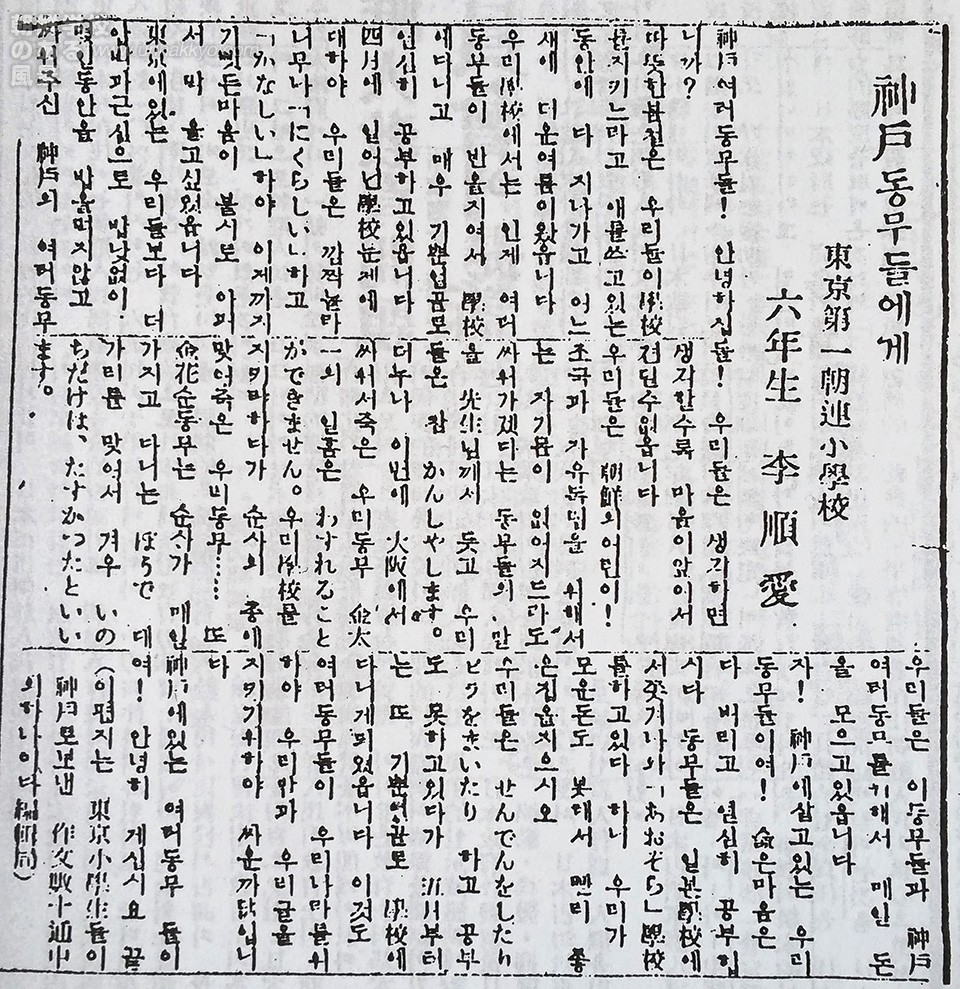 神戸동무들에게
東京第一朝連小學校
六年生 李順愛
神戸여러동무들! 안녕하십
니까?
따뜻한봄철은 우리들이學校
를지키느라고 애를쓰고있는
동안에 다 지나가고 어느
새에 더운여름이왔읍니다
우리學校에서는 인제 여러
동무들이 반을지여서 學校
에다니고 매우 기쁜얼골로
열심히 공부하고있읍니다
四月에 일어난學校문제에
대하야 우리들은 깜짝놀라
니무나「にくらしい」하고
「かなしい」하야 이제까지
기뻣든마음이 붙시로 아퍼
서 막 울고싶었읍니다
東京에있는 우리들보다 더
압박과근심으로 밤낮없이
몇일동안을 밥을먹지않고
싸워주신 神戸의 여러동무
들! 우리들은 생각하면
생각할수록 마음이앞어서
견딜수없읍니다
우리들은 朝鮮의어린이!
조국과 자유독립을 위해서
는 자기몸이 없어지드라도
싸워가겠다는 동무들의 말
을 先生님께서 듯고 우리
들은 참 かんしやします。
더누나 이번에 大阪에서
싸워서죽은 우리동무 金太
一의 일홈은 わすれること
ができません。우리學校를
지키랴하다가 순사의 총에
맞어죽은 우리동무…… 또
金花순동무는 순사가 매일
가지고 다니는 ぼうで 대
가리를 맞어서 겨우 いの
ちだけは、たすかつたといい
ます。
우리들은 이동무들과 神戸
여러동무를위해서 매일 돈
을 모으고있읍니다
자! 神戸에살고있는 우리
동무들이여! 슲은마음은
다 버리고 열심히 공부합
시다 동무들은 일본學校에
서쫓겨나와「あおぞら」學校
를하고있다 하니 우리가
모은돈도 봇태서 빨리 좋
은집을지으시오
우리들은 せんでんをしたり
ビラをまいたり 하고 공부
도 못하고있다가 五月부터
는 또 기쁜얼골로 學校에
다니게되었읍니다 이것도
여러동무들이 우리나라를위
하야 우리말과 우리글을
지키기위하야 싸운까닭입니
다
神戸에있는 여러동무들이
여! 안녕히 게십시요 끝
(이편지는 東京小學生들이
神戸로보낸 作文數十通中
의하나이다 編輯局)